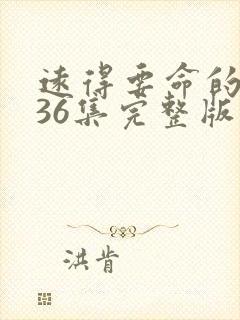 远得要命的
36集完整版
洪肯